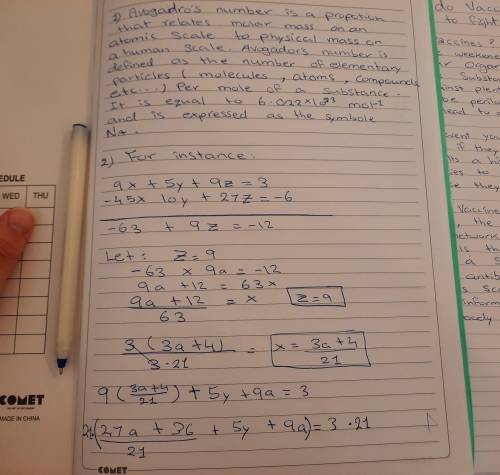 1) Avogadro's number is a propotion
that relates molar mass on an
atomic scale to physical mass on
a human scale. Avogador's number is
defined as the number of elementary
particles (molecules, atoms, compounds
etc...) Per mole of a substance.
It is equal to 6.022×10²³ mol⁻¹
and is expressed as the symbole
NA.
2) For instance:
9x + 5y + 9z = 3
-45x 10y + 27z = -6
-63 + 9z = -12
Let: z = 9
-63 x 9a = -12
9a + 12 = 63x
9a + 12 / 63 = x z = 9
3 (3a+4) / 3·21 = x = 3a+4 / 21
9 (3a+4 / 21) + 5y + 9a = 3
21 (27a + 36 / 21 + 5y + 9a) = 3·21
EDULE
WED THU
COMET
MADE IN CHINA
COMET
do Vacc
to fight
accines?
weekene
Organ
Subst
plent
be peri
ead to
event yo
if they
its a hi
ies to
e they
Vaccine
, the
network
is th
a s
antib
s Sc
inform